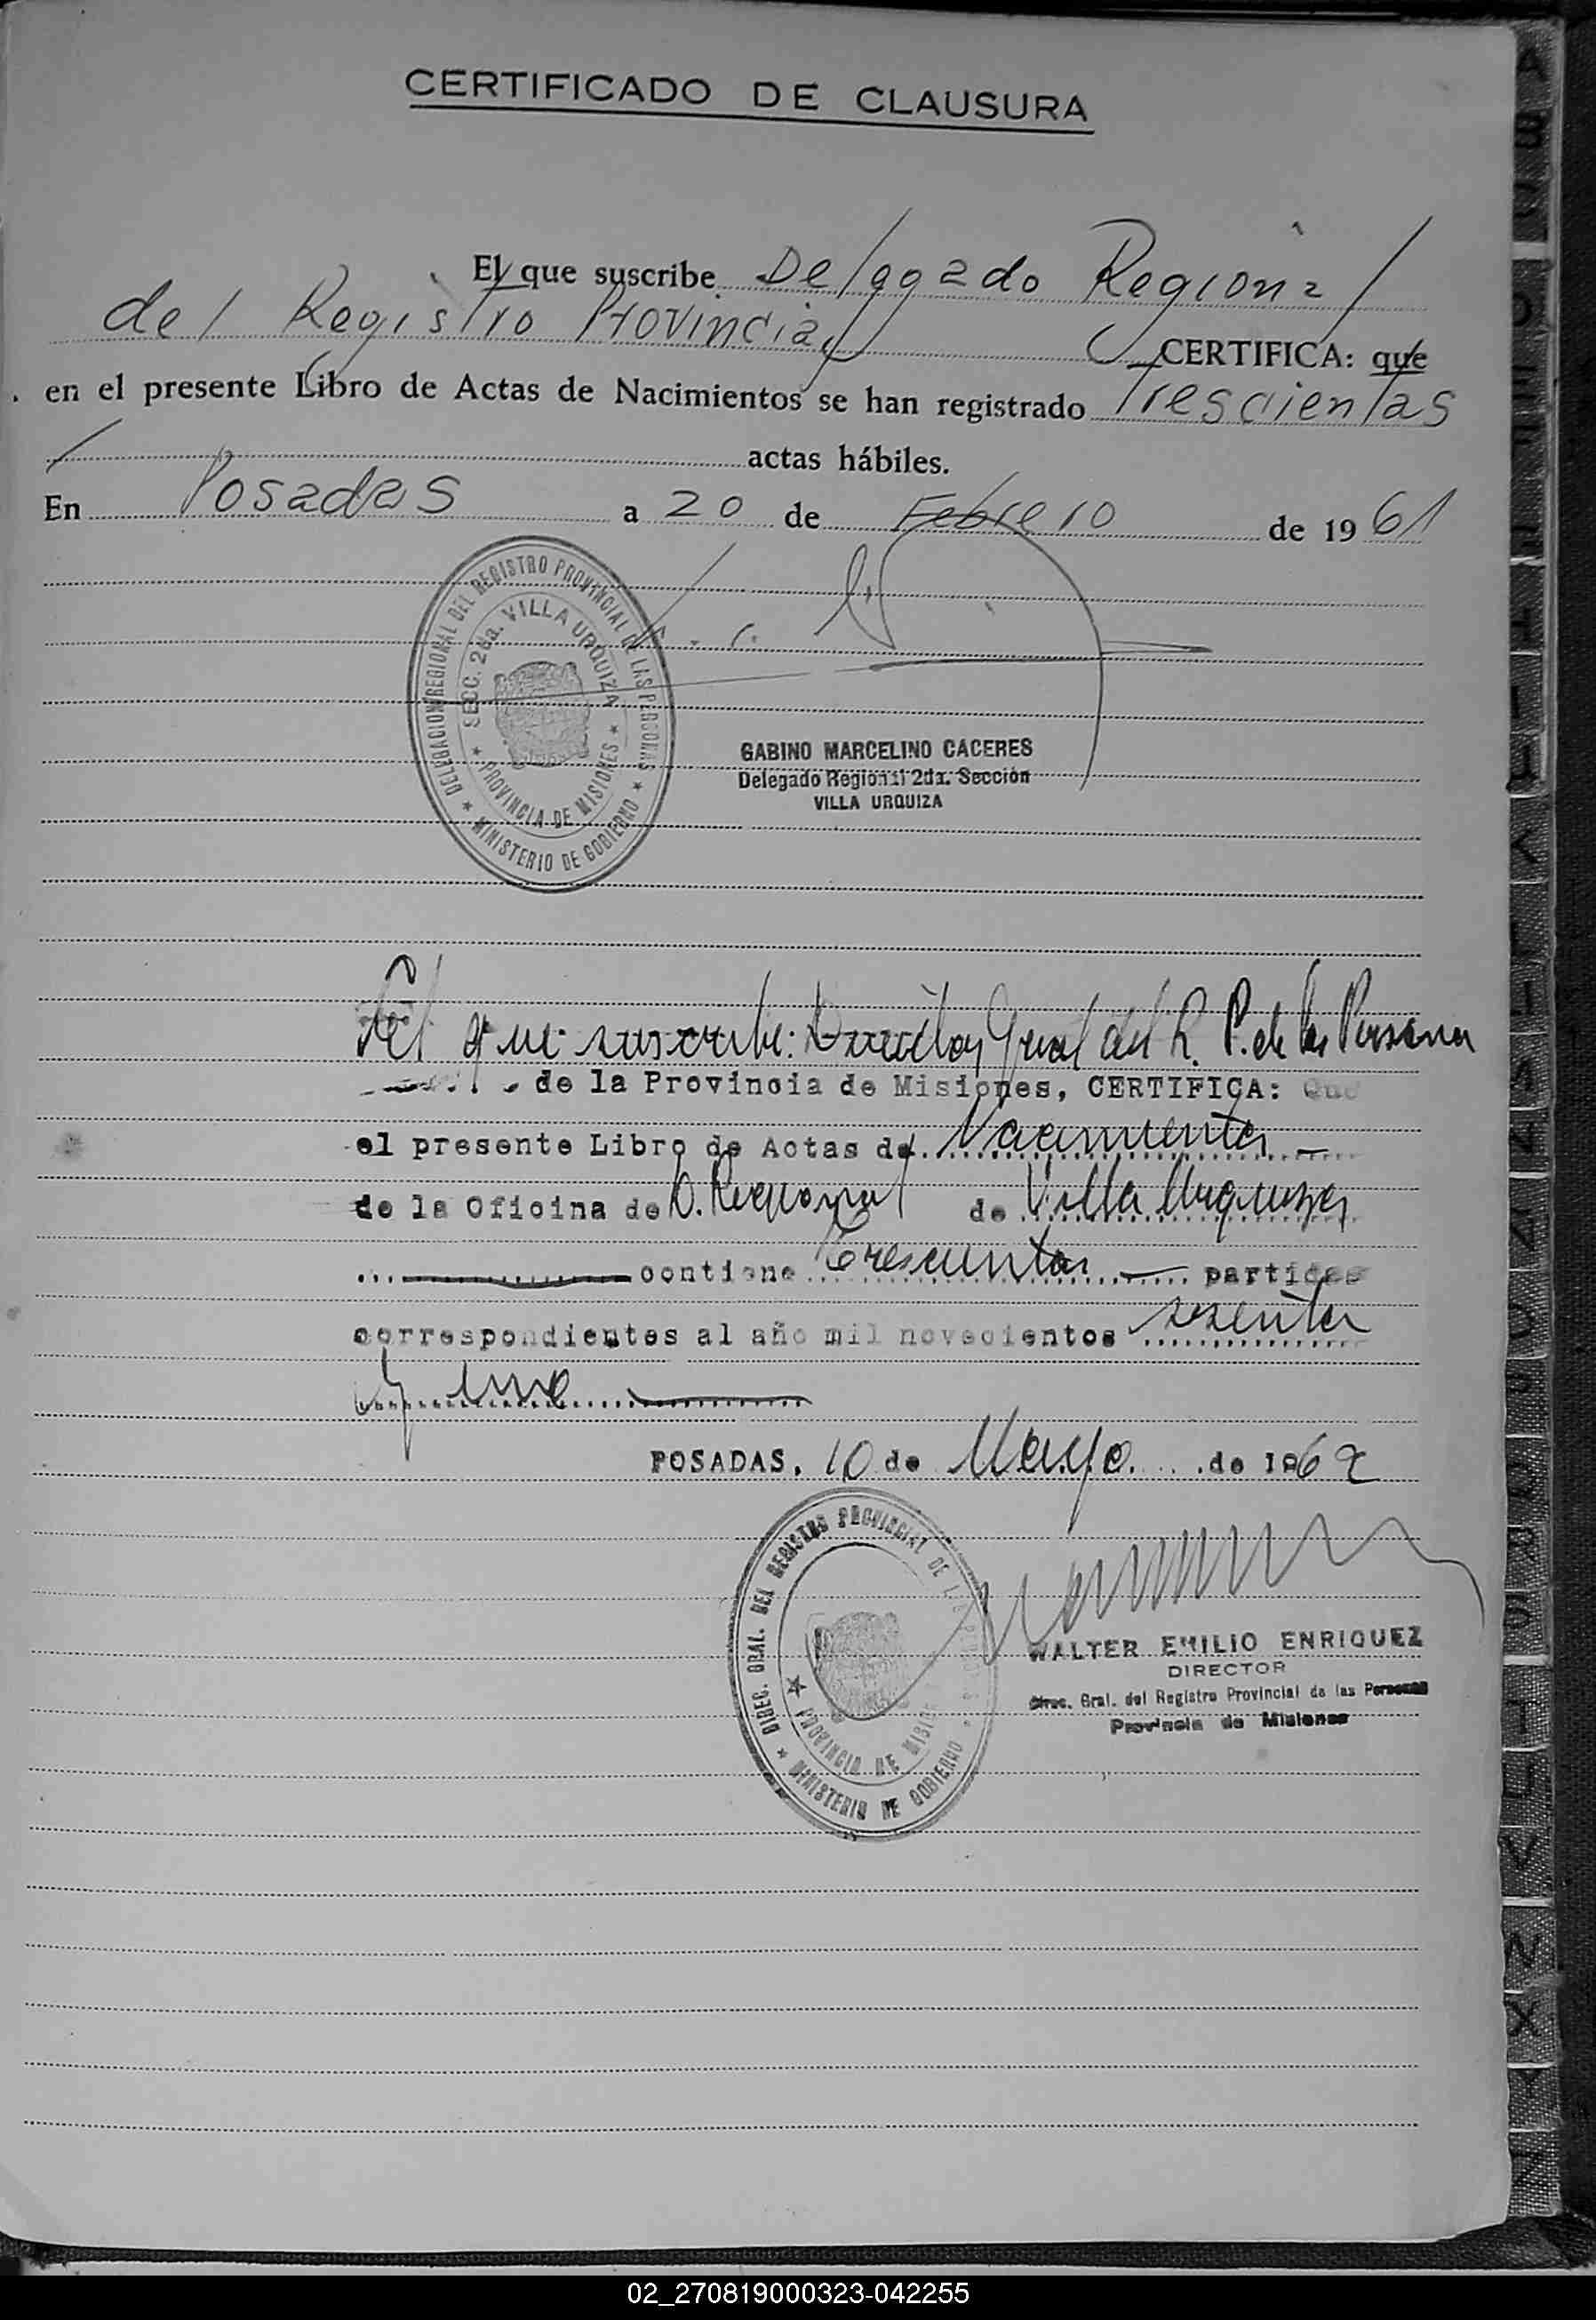 CERTIFICADO DE CLAUSURA
El que suscribe Delegado Regional
del Registro Provincial CERTIFICA: que
en el presente Libro de Actas de Nacimientos se han registrado Trescientas
actas hábiles.
En Posadas a 20 de Febrero de 1961
DELEGACION REGIONAL DEL REGISTRO PROVINCIAL DE LAS PERSONAS
SECC. 2da. VILLA URQUIZA
PROVINCIA DE MISIONES
MINISTERIO DE GOBIERNO
GABINO MARCELINO CACERES
Delegado Regional 2da. Sección
VILLA URQUIZA
El que suscribe: Director Gral del R. P. de las Personas
de la Provincia de Misiones, CERTIFICA: Que
el presente Libro de Actas de Nacimientos
de la Oficina de D. Regional de Villa Urquiza
contiene Trescientas partidas
correspondientes al año mil novecientos sesenta
y uno
POSADAS, 10 de Mayo de 1962
DIREC. GRAL. DEL REGISTRO PROVINCIAL DE LAS PERSONAS
PROVINCIA DE MISIONES
MINISTERIO DE GOBIERNO
WALTER EMILIO ENRIQUEZ
DIRECTOR
Direc. Gral. del Registro Provincial de las Personas
Provincia de Misiones
A
B
C
D
E
F
K
M
N
O
T
U
V
W
X
Y
Z
02_270819000323-042255